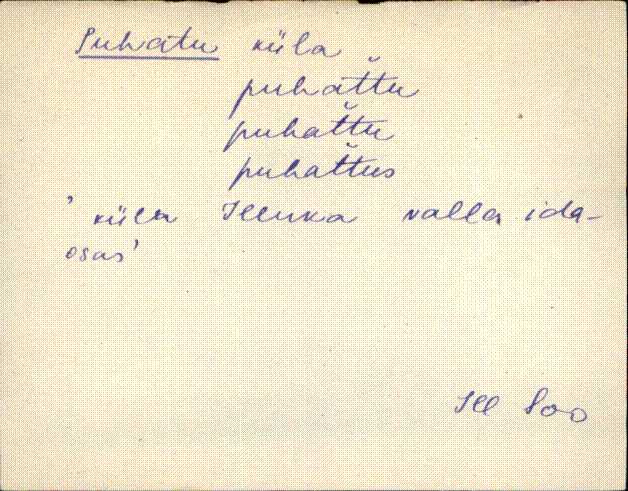 Puhatu küla
puhat̆tu
puhat̆tu
puhat̆tus
'küla Illuka valla ida-
osas'
Ill Soo